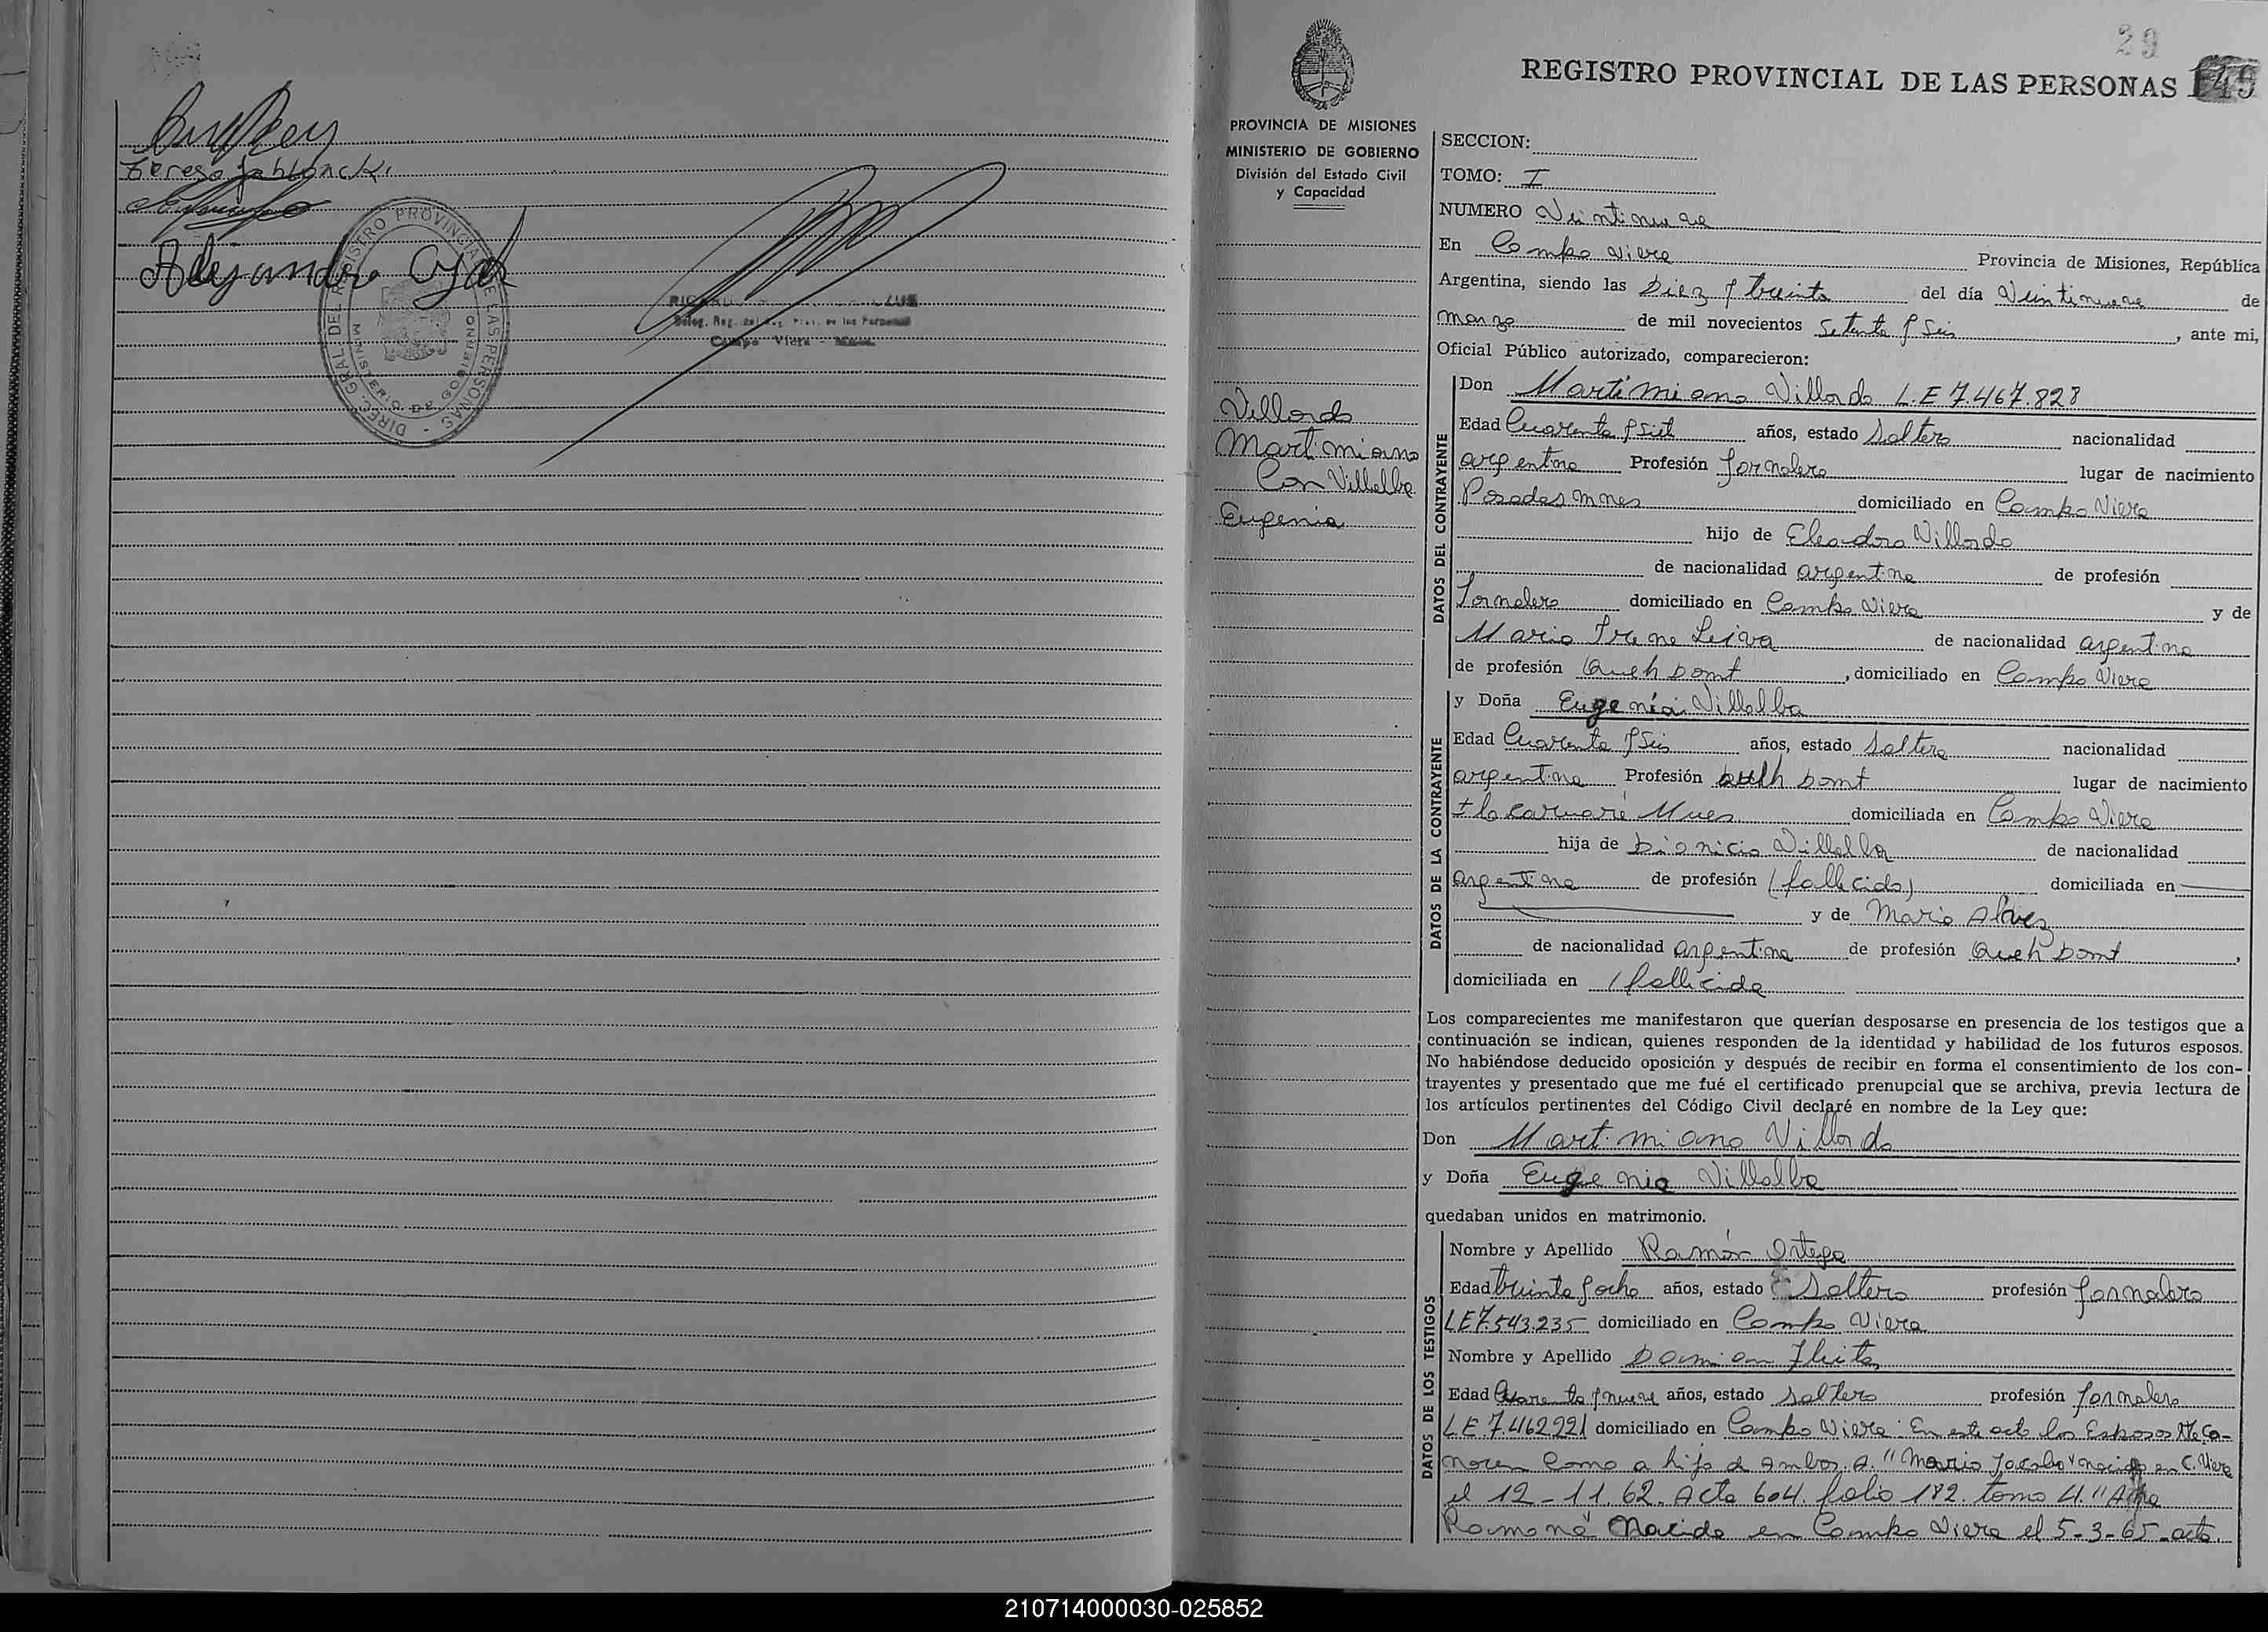 Teresa Jabloncki
Alejandro
DIREC. GRAL DEL REGISTRO PROVINCIAL DE LAS PERSONAS -
MINISTERIO DE GOBIERNO
Deleg. Reg. del de las Personas
Campo Viera -
29
REGISTRO PROVINCIAL DE LAS PERSONAS 149
PROVINCIA DE MISIONES
MINISTERIO DE GOBIERNO
División del Estado Civil
y Capacidad
Villordo
Martimiano
Con Villalba
Eugenia
SECCION:
TOMO: I
NUMERO Veintinueve
En Campo Viera Provincia de Misiones, República
Argentina, siendo las Diez y treinta del día Veintinueve de
marzo de mil novecientos Setenta y Seis, ante mi,
Oficial Público autorizado, comparecieron:
DATOS DEL CONTRAYENTE
Don Martimiano Villordo L.E 7.467.828
Edad Cuarenta y Siet años, estado Soltero nacionalidad
argentina Profesión Jornalero lugar de nacimiento
Posadas mnes domiciliado en Campo Viera
hijo de Eleodoro Villordo
de nacionalidad argentina de profesión
Jornalero domiciliado en Campo Viera y de
Maria Irene Leiva de nacionalidad argentina
de profesión Queh Domt, domiciliado en Campo Viera
DATOS DE LA CONTRAYENTE
y Doña Eugenia Villalba
Edad Cuarenta y Seis años, estado Soltera nacionalidad
argentina Profesión Domt lugar de nacimiento
Mnes domiciliada en Campo Viera
hija de Dionicio Villalba de nacionalidad
argentina de profesión (fallecido) domiciliada en
y de Maria Alvez
de nacionalidad argentina de profesión Queh Domt,
domiciliada en / fallecida
Los comparecientes me manifestaron que querían desposarse en presencia de los testigos que a
continuación se indican, quienes responden de la identidad y habilidad de los futuros esposos.
No habiéndose deducido oposición y después de recibir en forma el consentimiento de los con-
trayentes y presentado que me fué el certificado prenupcial que se archiva, previa lectura de
los artículos pertinentes del Código Civil declaré en nombre de la Ley que:
Don Martimiano Villordo
y Doña Eugenia Villalba
quedaban unidos en matrimonio.
DATOS DE LOS TESTIGOS
Nombre y Apellido Ramón Ortega
Edad treinta y ocho años, estado Soltero profesión Jornalero
LE 7.543.235 domiciliado en Campo Viera
Nombre y Apellido Damian Fleitas
Edad Cuarenta y nueve años, estado soltero profesión Jornalero
LE 7.462.221 domiciliado en Campo Viera. En este acto los Esposos Re Co-
nocen Como a hijo de Ambos. A. "Mario Jacobo" nacido en C. Viera
el 12-11.62. Acta 604. folio 182. tomo 4. "
Ramona" Nacida en Campo Viera el 5-3-65-acta
210714000030-025852